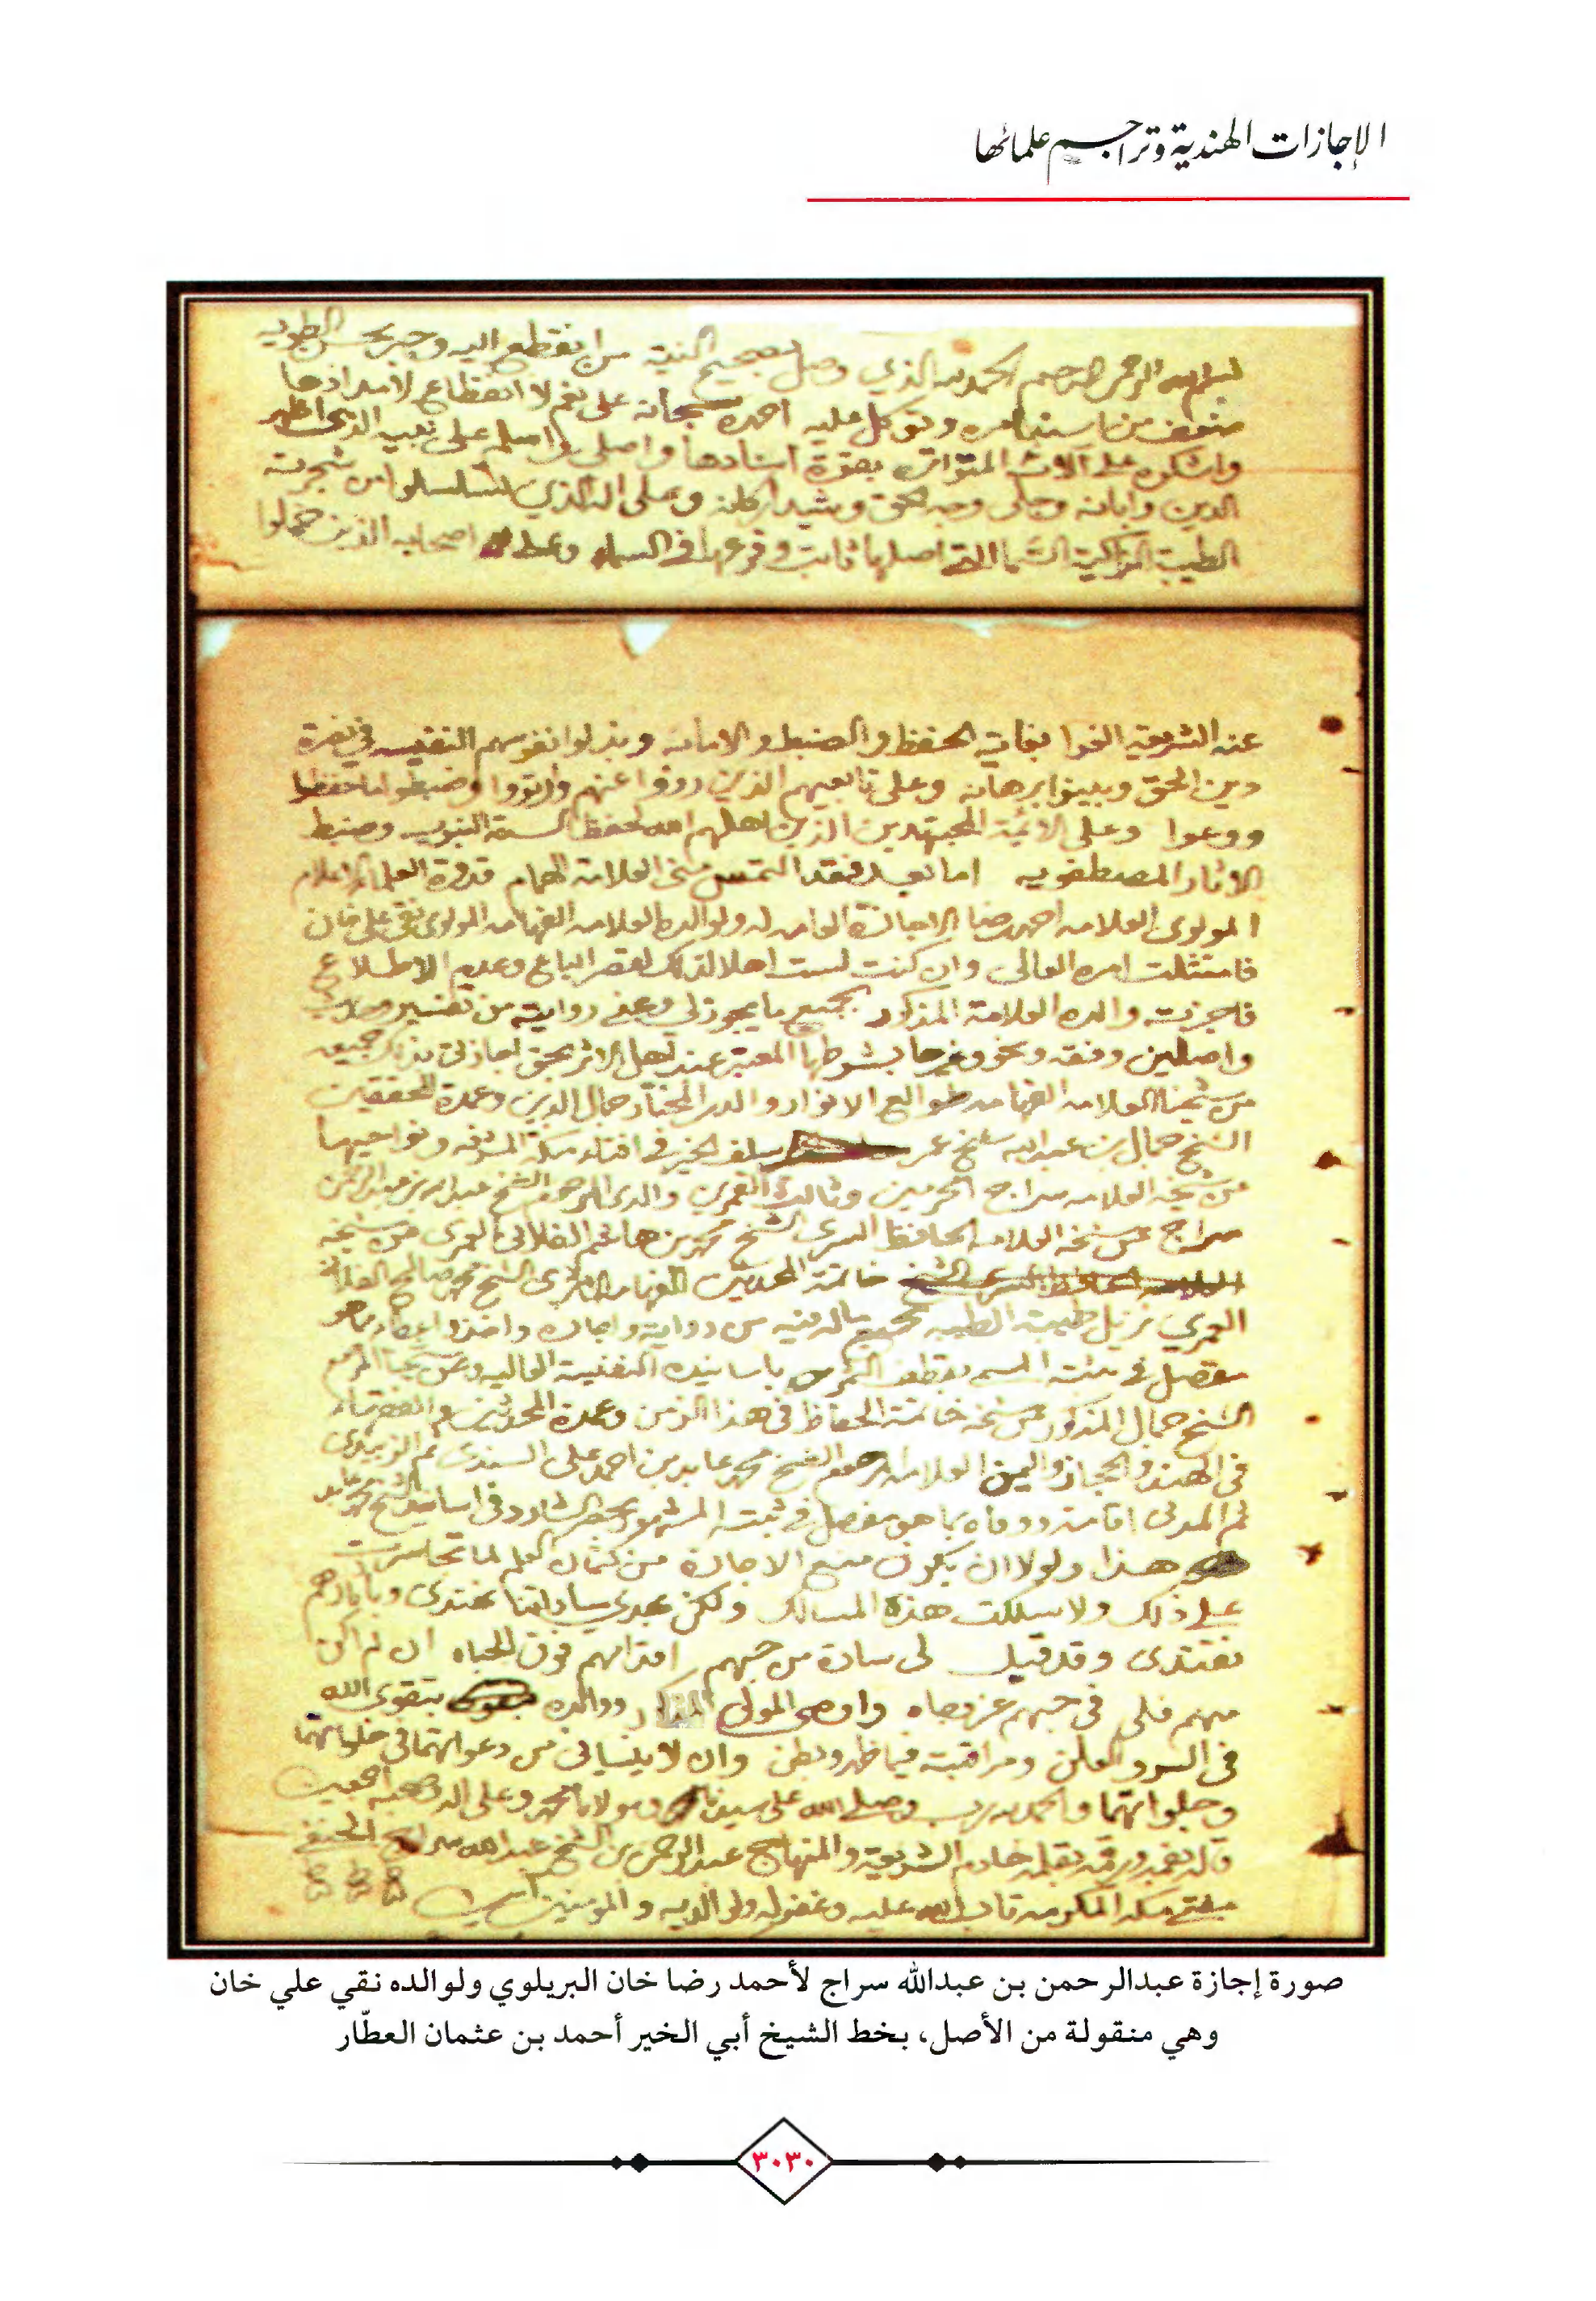 الإجازات الهندية وتراجم علمائها
بسم الله الرحمن الرحيم الحمد لله الذي وصل بصحيح النية من انقطع اليه وجبر بحسن الطويه
ضعف من استند امره وتوكل عليه احمده سبحانه على نعم لا انقطاع لامدادها
واشكره على آلائه المتواتره بقوة اسنادها واصلي واسلم على نبيه الذي اظهر
الدين وابانه وجلى وجه الحق وشيد اركانه وعلى اله الذي تسلسلوا من شجرته
الطيبة الزاكية الشما التي اصلها ثابت وفرعها في السماء وعلى اصحابه الذين حملوا
عنه الشريعة الغرا بغاية الحفظ والضبط والامانه وبذلوا نفوسهم النفيسه في نصرة
دين الحق وبينوا برهانه وعلى تابعيهم الذين رووا عنهم وارتووا وضبطوا ما حفظوا
ووعوا وعلى الائمة المجتهدين الذين اهلهم الله لحفظ السنة النبويه وضبط
الاثار المصطفويه اما بعد فقد التمس مني العلامة الهمام قدوة العلما الاعلام
المولوى العلامه احمد رضا الاجازة العامه له ولوالده العلامه الفهامه المولوى نقي علي خان
فامتثلت امره العالى وان كنت لست اهلا لذلك لقصر الباع وعدم الاطلاع
فاجزته والده العلامة المذكور بجميع ما يجوز لي وعني روايته من تفسير وحديث
واصلين وفقه ونحو وغيرها بشرطها المعتبر عند اهل الاثر بحق اجازتى بذلك جميعه
من شيخنا العلامه الفهامه طوالع الانوار والدر المختار جمال الدين وعمدة المحققين
الشيخ جمال بن عبدالله شيخ عمر سلف الخير في افتاء مكة المشرفه ونواحيها
من شيخه العلامه سراج الحرمين وثالث القمرين والدى المرحوم الشيخ عبدالله بن عبدالرحمن
سراج عن شيخه العلامه الحافظ السرى الشيخ محمد بن هاشم الفلانى العمرى عن شيخه
خاتمة المحدثين الفهامه الاثرى الشيخ محمد صالح الفلاني
العمري نزيل طيبة الطيبه بجميع ماله فيه من رواية واجازه واخذ وايصاء مما هو
مفصل في ثبته المسمى بقطف الثمر باسانيده النفيسة العاليه وعن شيخنا المرحوم
الشيخ جمال المذكور عن شيخه خاتمة الحفاظ في هذا الزمن وعمدة المحدثين والفقهاء
فى الهند والحجاز واليمن العلامه المرحوم الشيخ محمد عابد بن احمد على السندى ثم الزبيدى
ثم المدنى اقامة ووفاه بما هو مفصل في ثبته المشهور بحصر الشارد فى اسانيد الشيخ محمد عابد
هذا ولولا ان يكون منع الاجازة من كتمان العلم لما تجاسرت
على ذلك ولا سلكت هذه المسالك ولكن بهدي ساداتنا نهتدى وباثارهم
نقتدى وقد قيل لى سادة من حبهم اقدامهم فوق الجباه ان لم اكن
منهم فلى فى حبهم عز وجاه واوصى المولى المذكور ووالده بتقوى الله
فى السر والعلن ومراقبته فيما ظهر وبطن وان لا ينسيانى من دعواتهما فى خلواتهما
وجلواتهما والحمد لله رب وصلى الله على سيدنا ومولانا محمد وعلى اله وصحبه اجمعين
قاله بفمه ورقمه بقلمه خادم الشريعة والمنهاج عبدالرحمن بن الشيخ عبدالله سراج الحنفي
مفتي مكة المكرمه تاب الله عليه وغفر له ولوالديه والمومنين امين
صورة إجازة عبدالرحمن بن عبدالله سراج لأحمد رضا خان البريلوي ولوالده نقي علي خان
وهي منقولة من الأصل، بخط الشيخ أبي الخير أحمد بن عثمان العطّار
٣٠٣٠